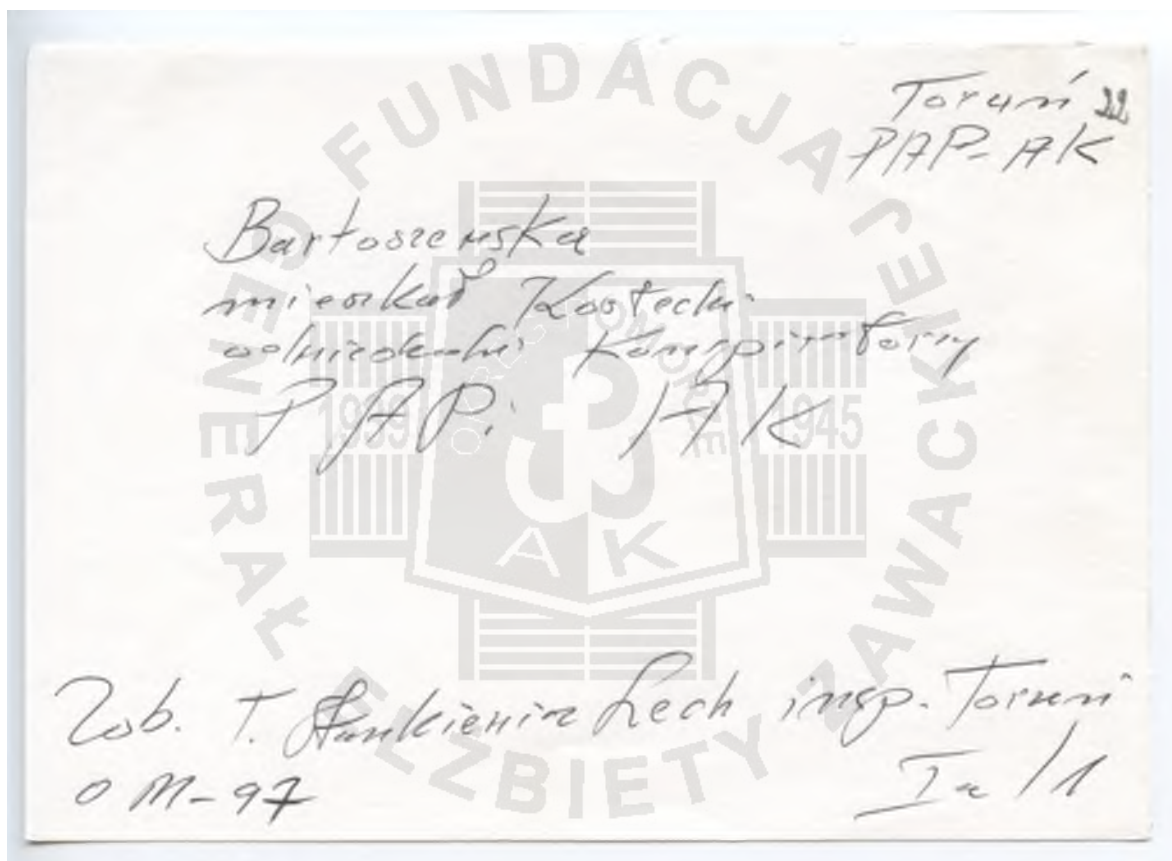 Toruń 22
PAP-AK
Bartoszewska
mieszkał Kostecki
konspiratorzy
PAP i AK
Zob. T. Lech insp. Toruń
O M-97
I a /1
FUNDACJA
GENERAŁ ELŻBIETY ZAWACKIEJ
1939
1945
AK